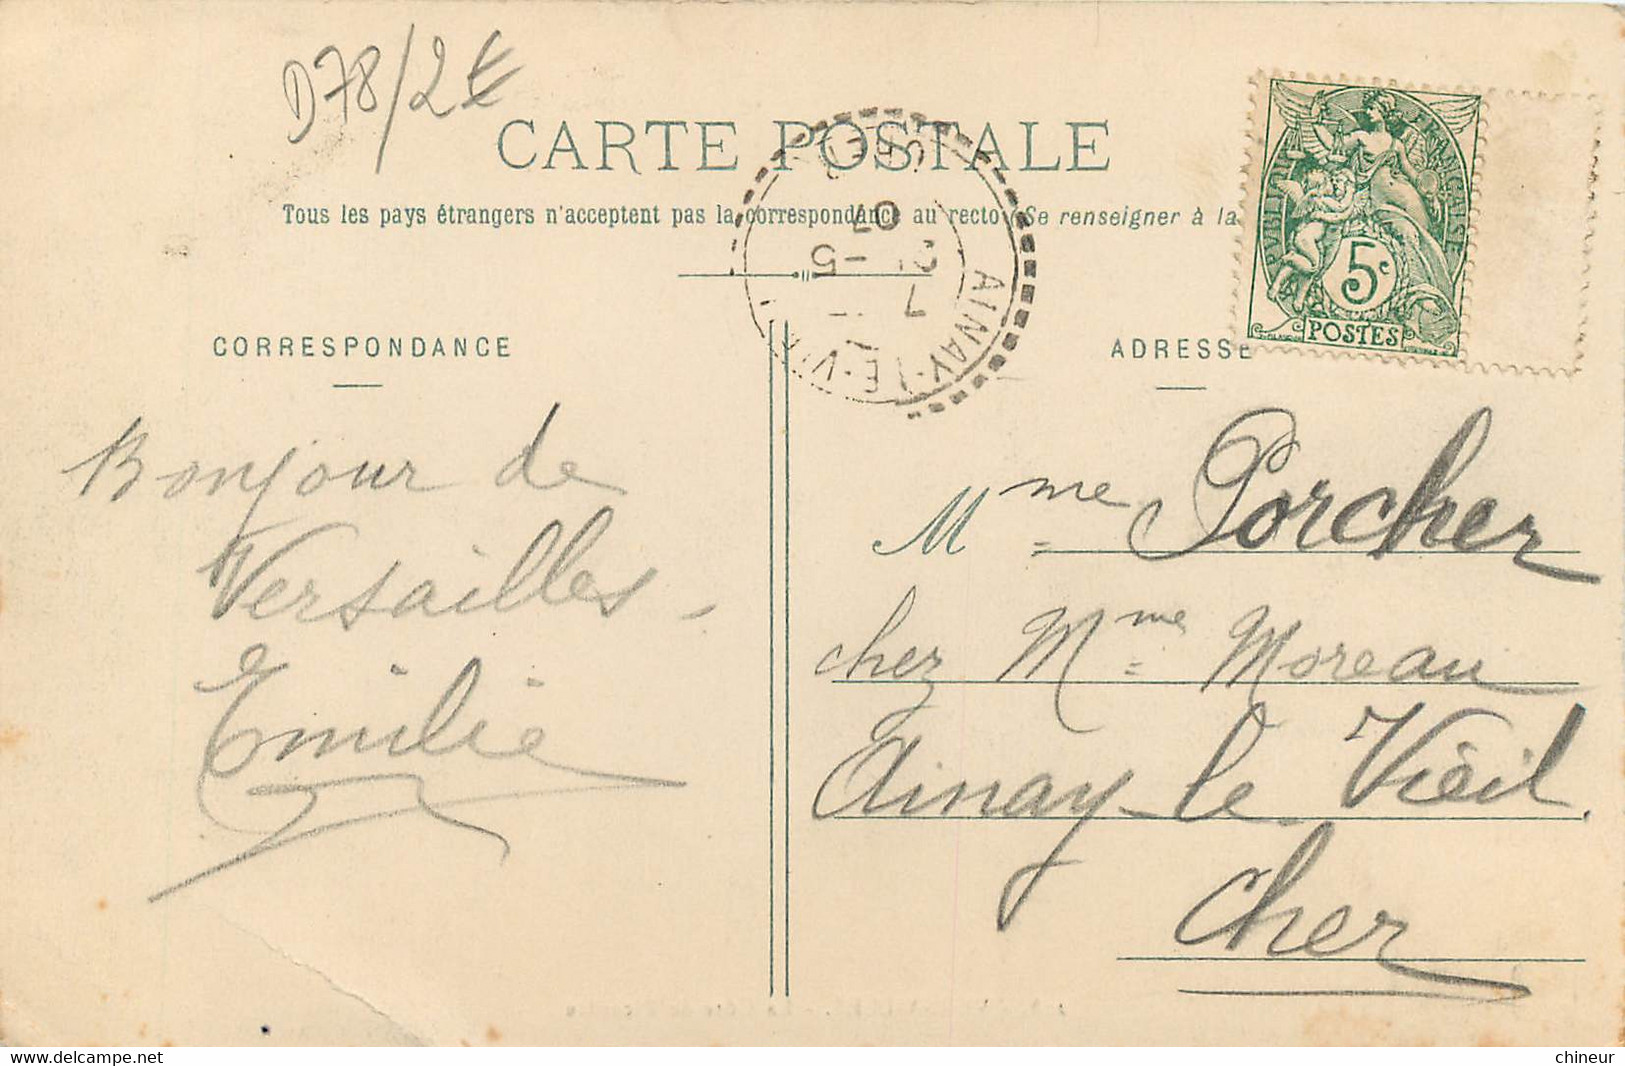 D78/2€
CARTE POSTALE
Tous les pays étrangers n'acceptent pas la correspondance au recto (Se renseigner à la
CORRESPONDANCE
ADRESSE
RÉPUBLIQUE FRANÇAISE
5c
POSTES
CHER
AINAY-LE-VIEIL
7
21-5
07
Bonjour de
Versailles -
Emilie
Mme Porcher
chez Mme Moreau
Ainay-le Vieil.
Cher
www.delcampe.net
chineur